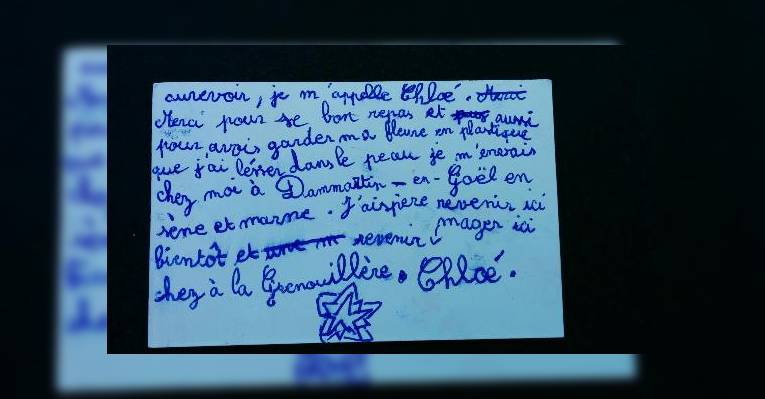 aurevoir, je m'appelle Chloé. Merci
Merci pour se bon repas et aussi
pour avois garder ma fleure en plastique
que j'ai lésser dans le peau je m'en vais
chez moi à Dammattin-en-Goël en
sène et marne. J'aispère revenir ici
bientôt et revenir mager ici
chez à la Grenouillère. Chloé.